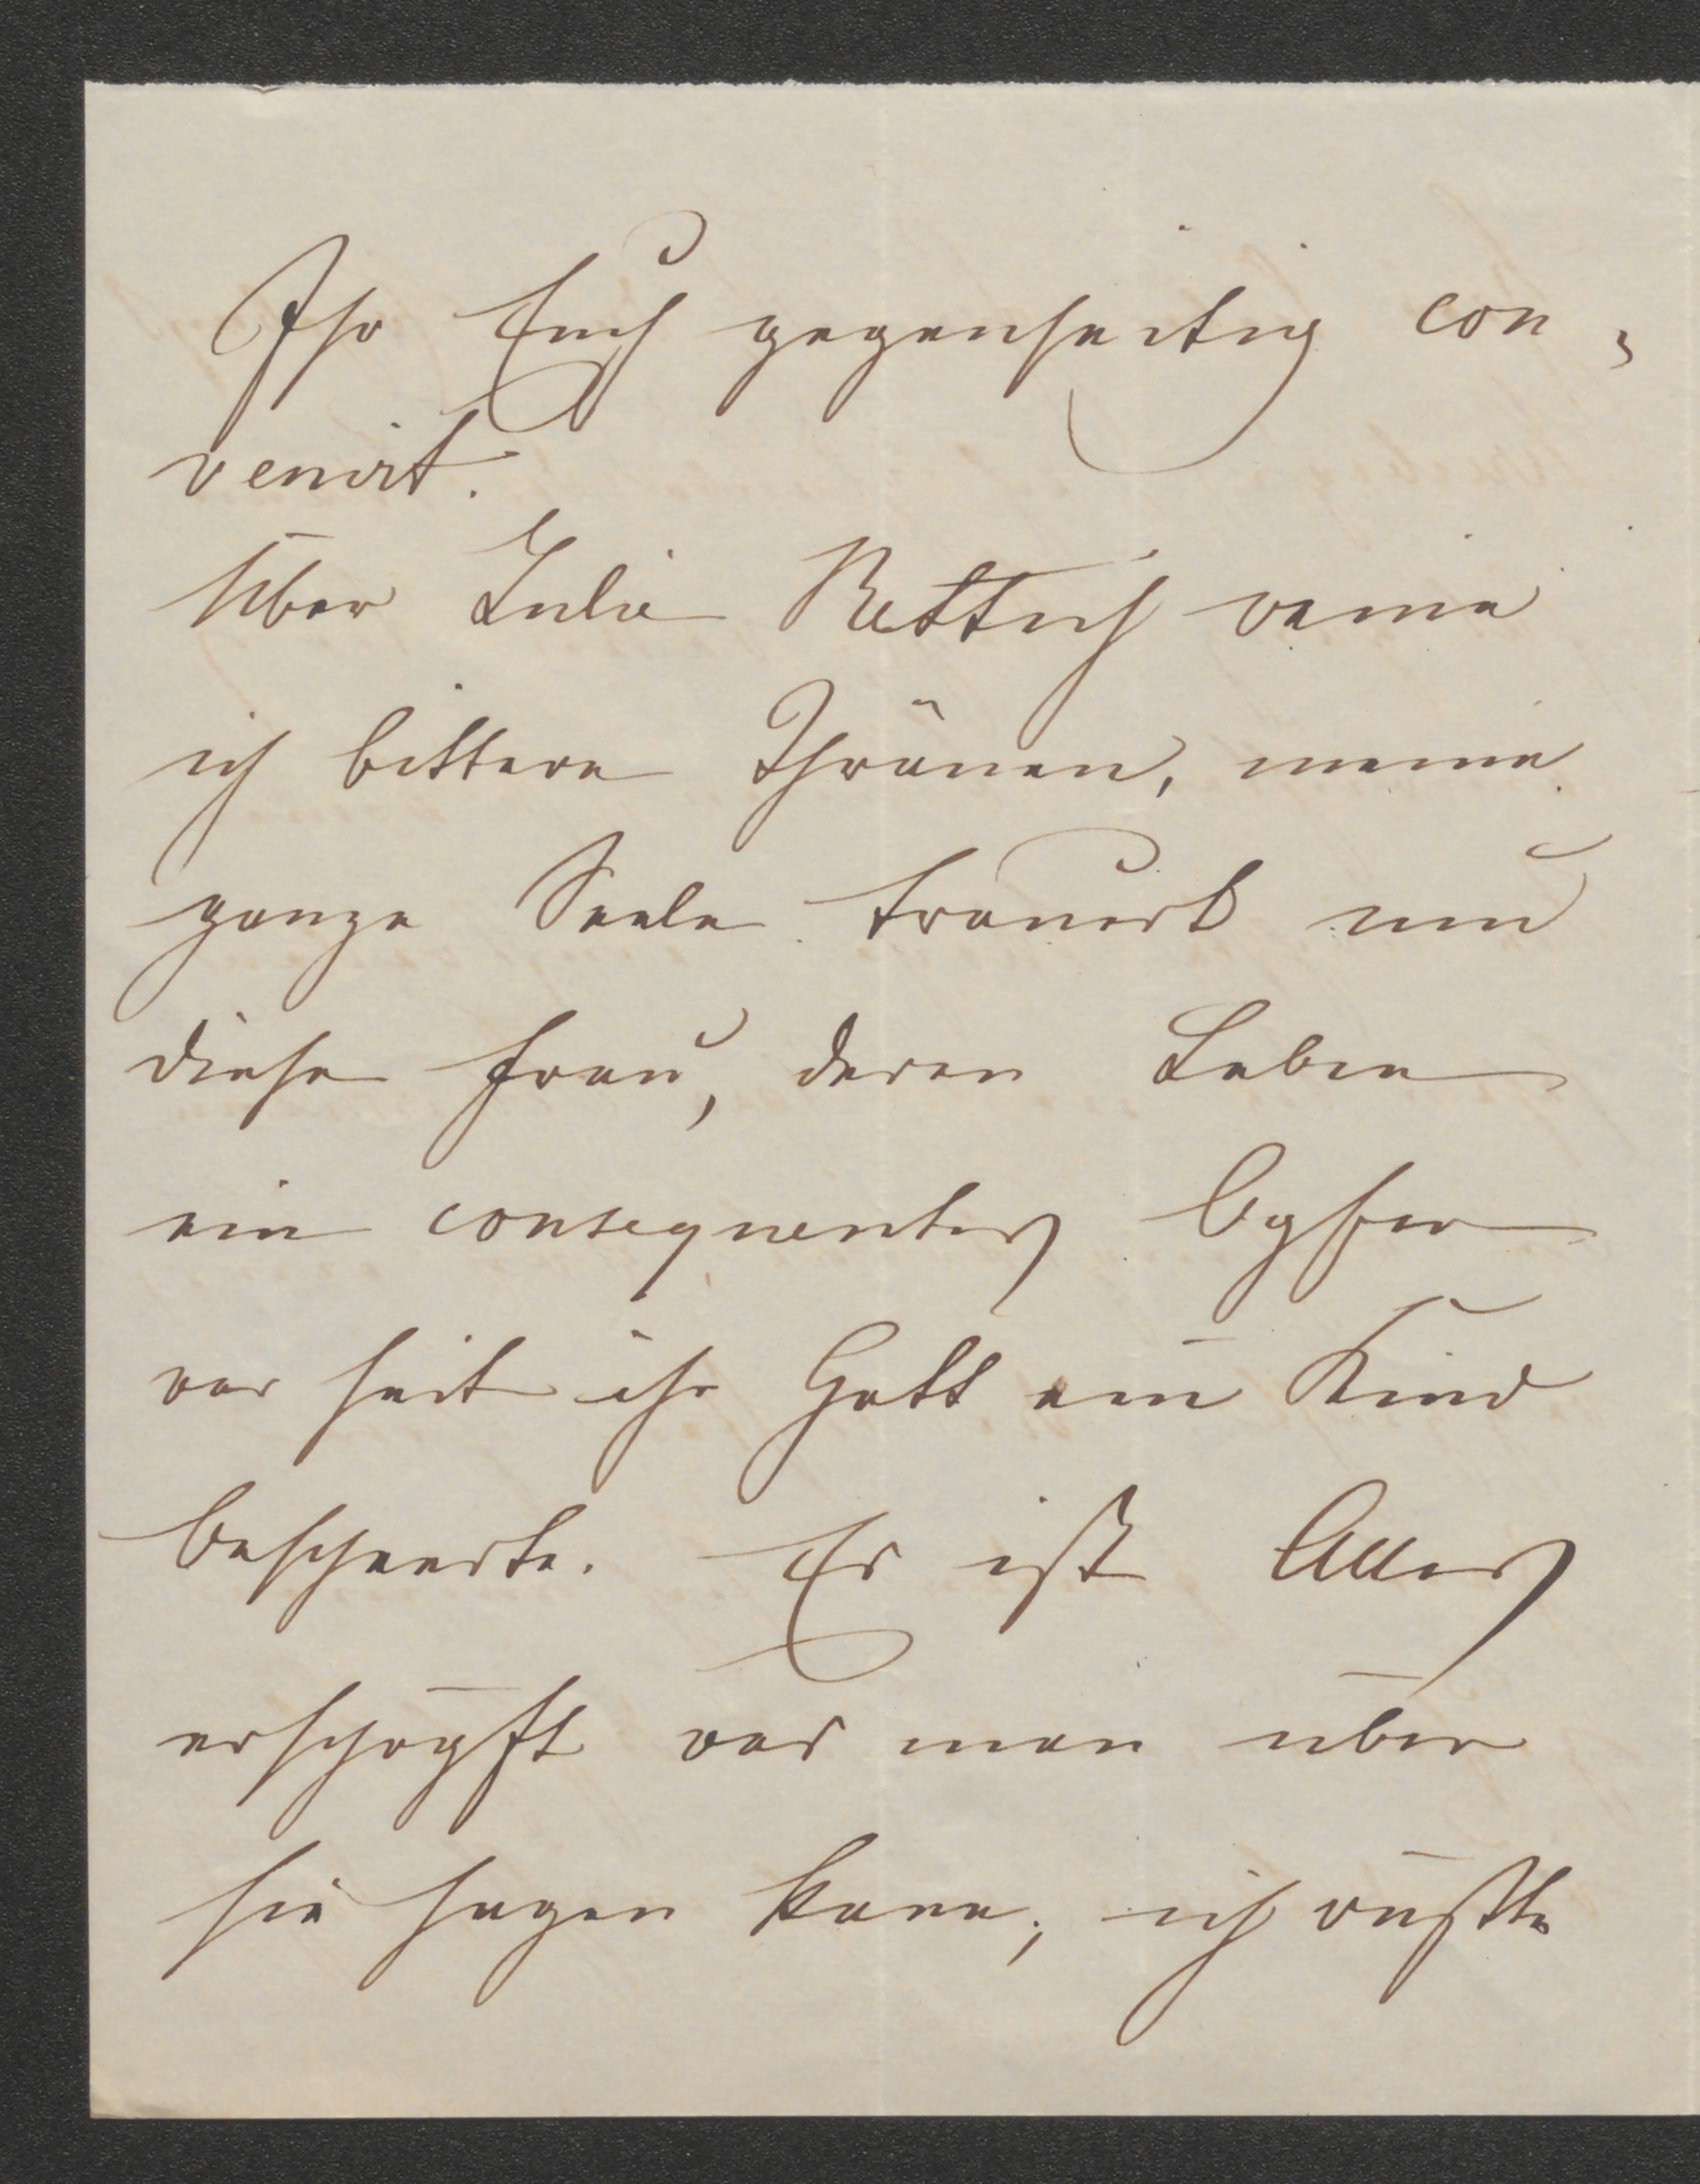 Ihr Euch gegenseitig con-
venirt.
Über Julie Rettich weine
ich bittere Thränen, meine
ganze Seele trauert um
diese Frau, deren Leben
ein consequentes Opfer
war seit ihr Gott ein Kind
bescheerte. Es ist Alles
erschöpft was man über
sie sagen kann; ich wüßte